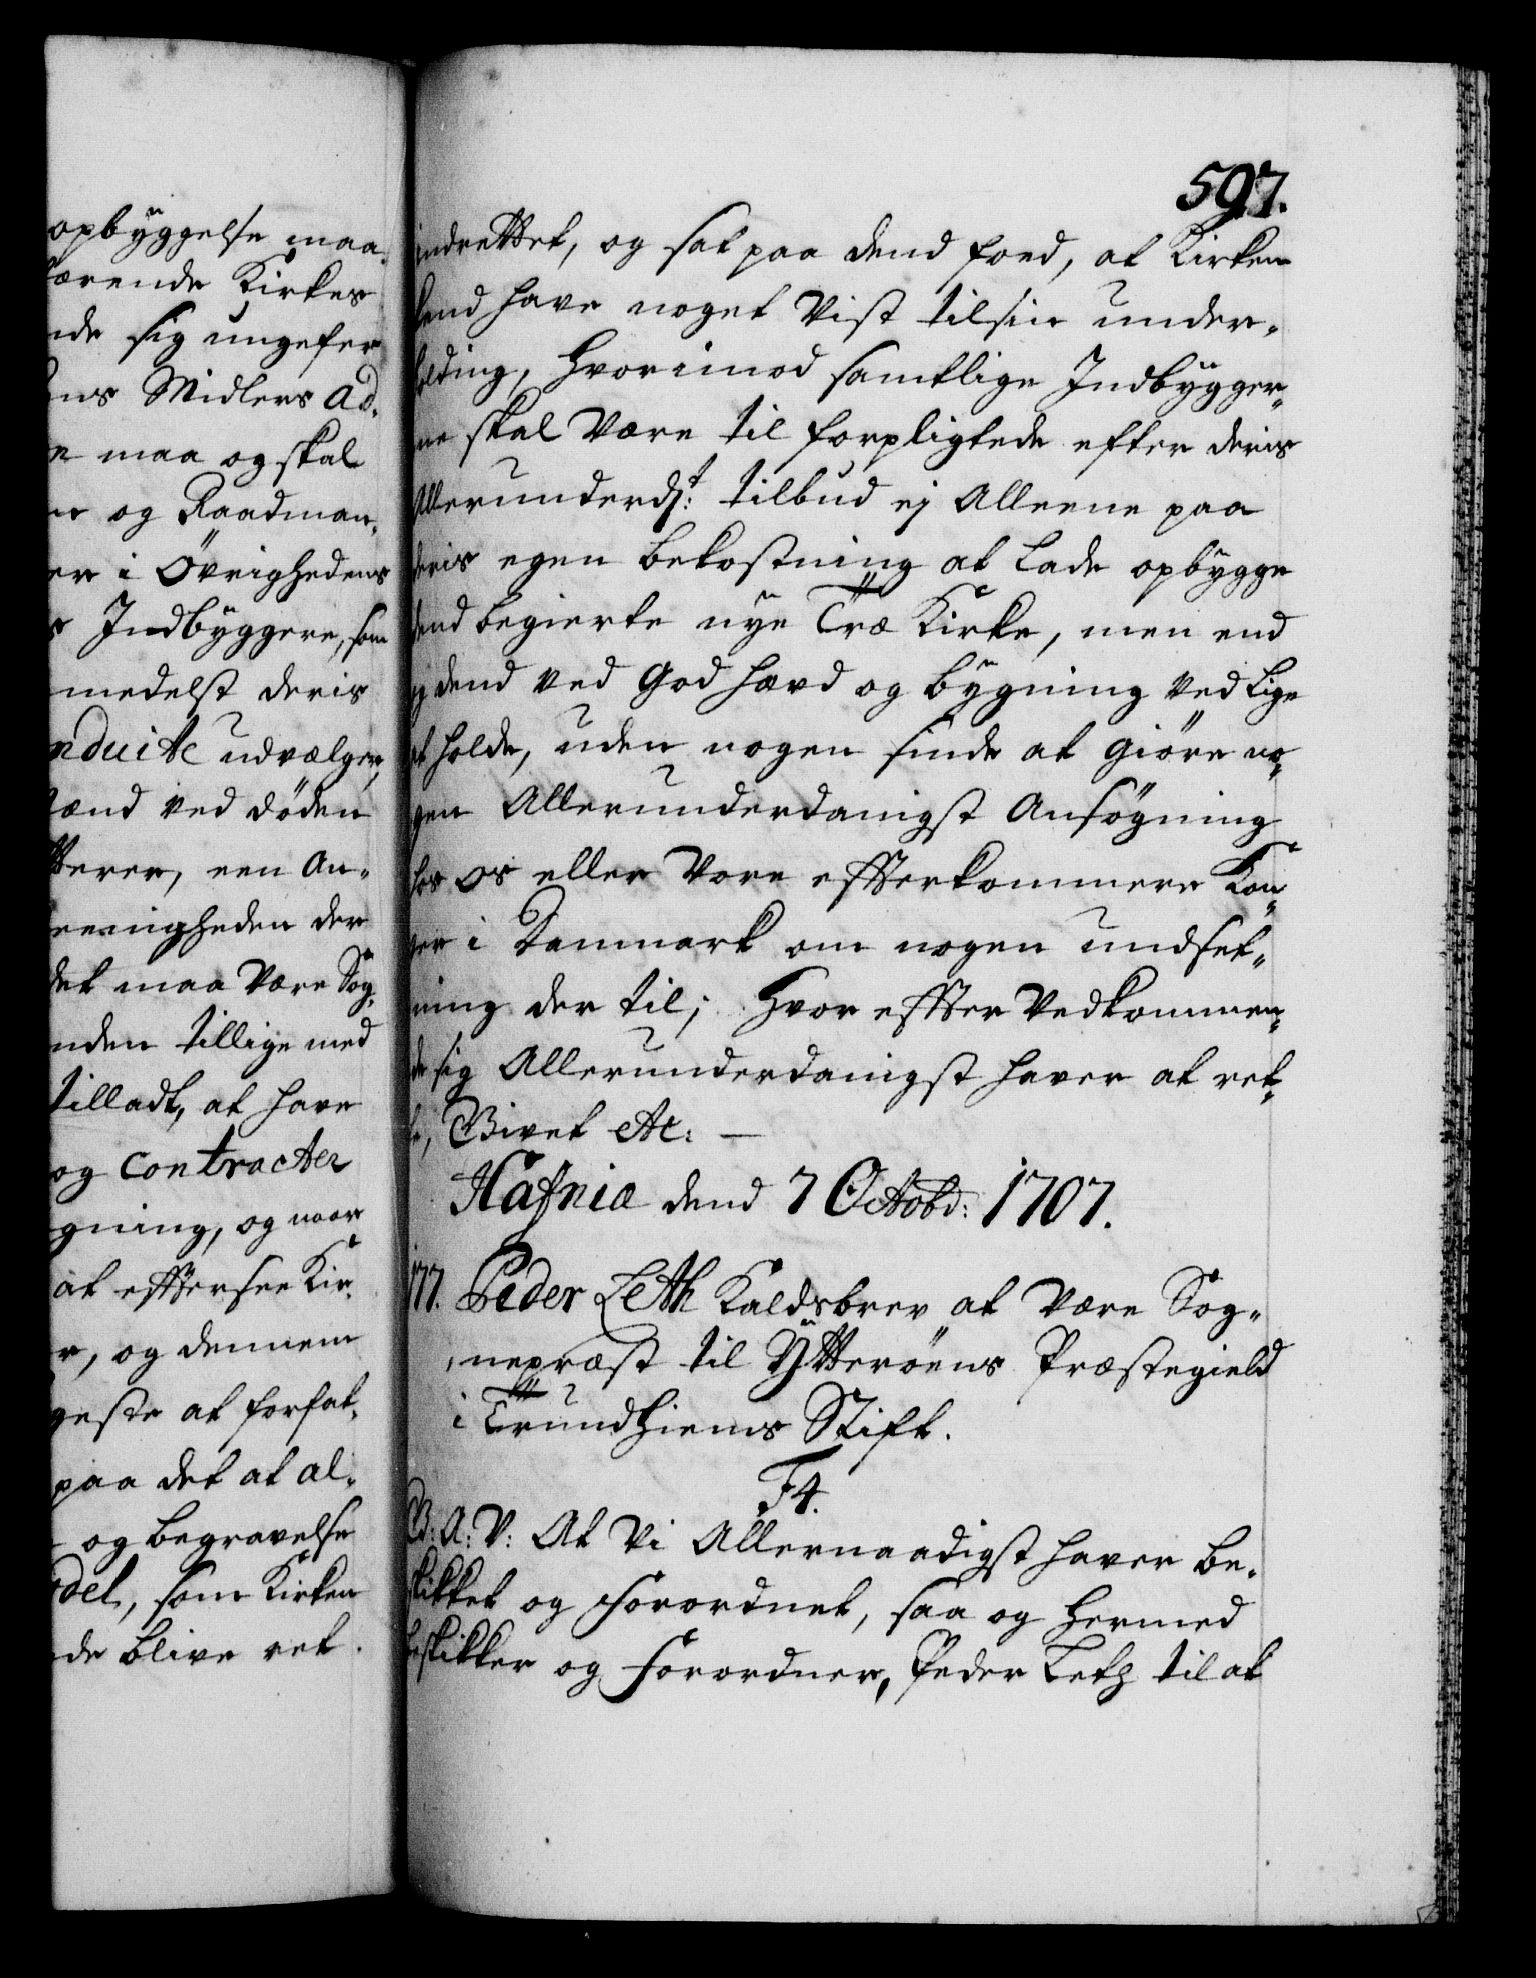 opbyggelse maa
ærende Kirkes
nde sig ungefer
ens Midlers ad-
e maa og skal
er og Raadman-
er i Øvrighedens
s Indbyggere, som
medelst deris
nduite udvælger,
ænd ved døden
terer, een an-
eenigheden der
det maa være Sog-
nden tillige med
tilladt, at have
og Contracter
gning, og naar
at efftersee Kir-
r, og dennem
geste at forfat-
paa det at al-
og begravelse
del, som Kirken
de blive ret
597.
indrettet, og sat paa dend foed, at Kirken
kand have noget vist til sin under-
holding, hvorimod samtlige Indbygger-
ne skal være til forpligtede efter deris
Allerunderdst: tilbud ej alleene paa
deris egen bekostning at lade opbygge
dend begierte nye Træ Kirke, men end
og dend ved god hævd og bygning ved lige
at holde, uden nogen sinde at giøre no-
gen Allerunderdanigst Ansøgning
hos os eller vore effterkommere Kon-
ger i Danmark om nogen undset-
ning der til; Hvor effter vedkommen-
de sig Allerunderdanigst haver at ret-
te, Givet etc:
Hafnia dend 7 Octobr: 1707.
177. Peder Leth Kaldsbrev at være Sog-
nepræst til Ytterøens Præstegield
i Trundhiems Stift.
F4.
G: A: V: At Vi Allernaadigst haver be-
skikket og forordnet, saa og hermed
beskikker og forordner, Peder Leth til at